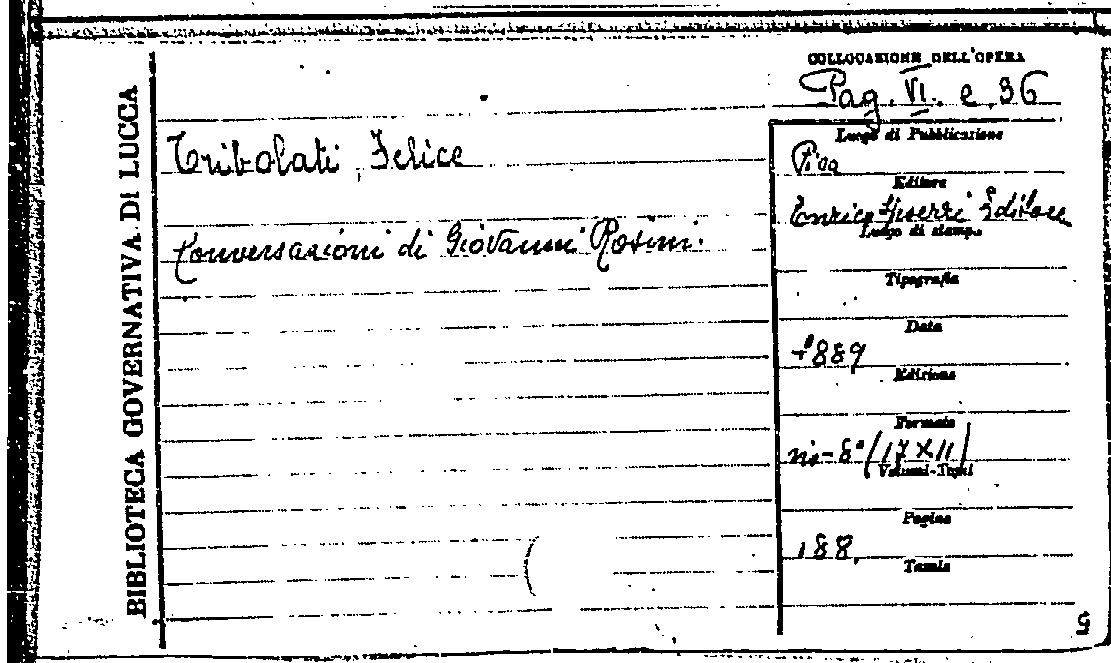 BIBLIOTECA GOVERNATIVA DI LUCCA
COLLOCAZIONE DELL'OPERA
Pag. VI. e. 36
Tribolati Felice
Conversazioni di Giovanni Rosini.
Luogo di Pubblicazione
Pisa
Editore
Enrico Spoerri Editore
Luogo di stampa
Tipografia
Data
1889
Edizione
Formato
in-8° (17 X 11)
Volumi-Tomi
Pagine
188.
Tavole